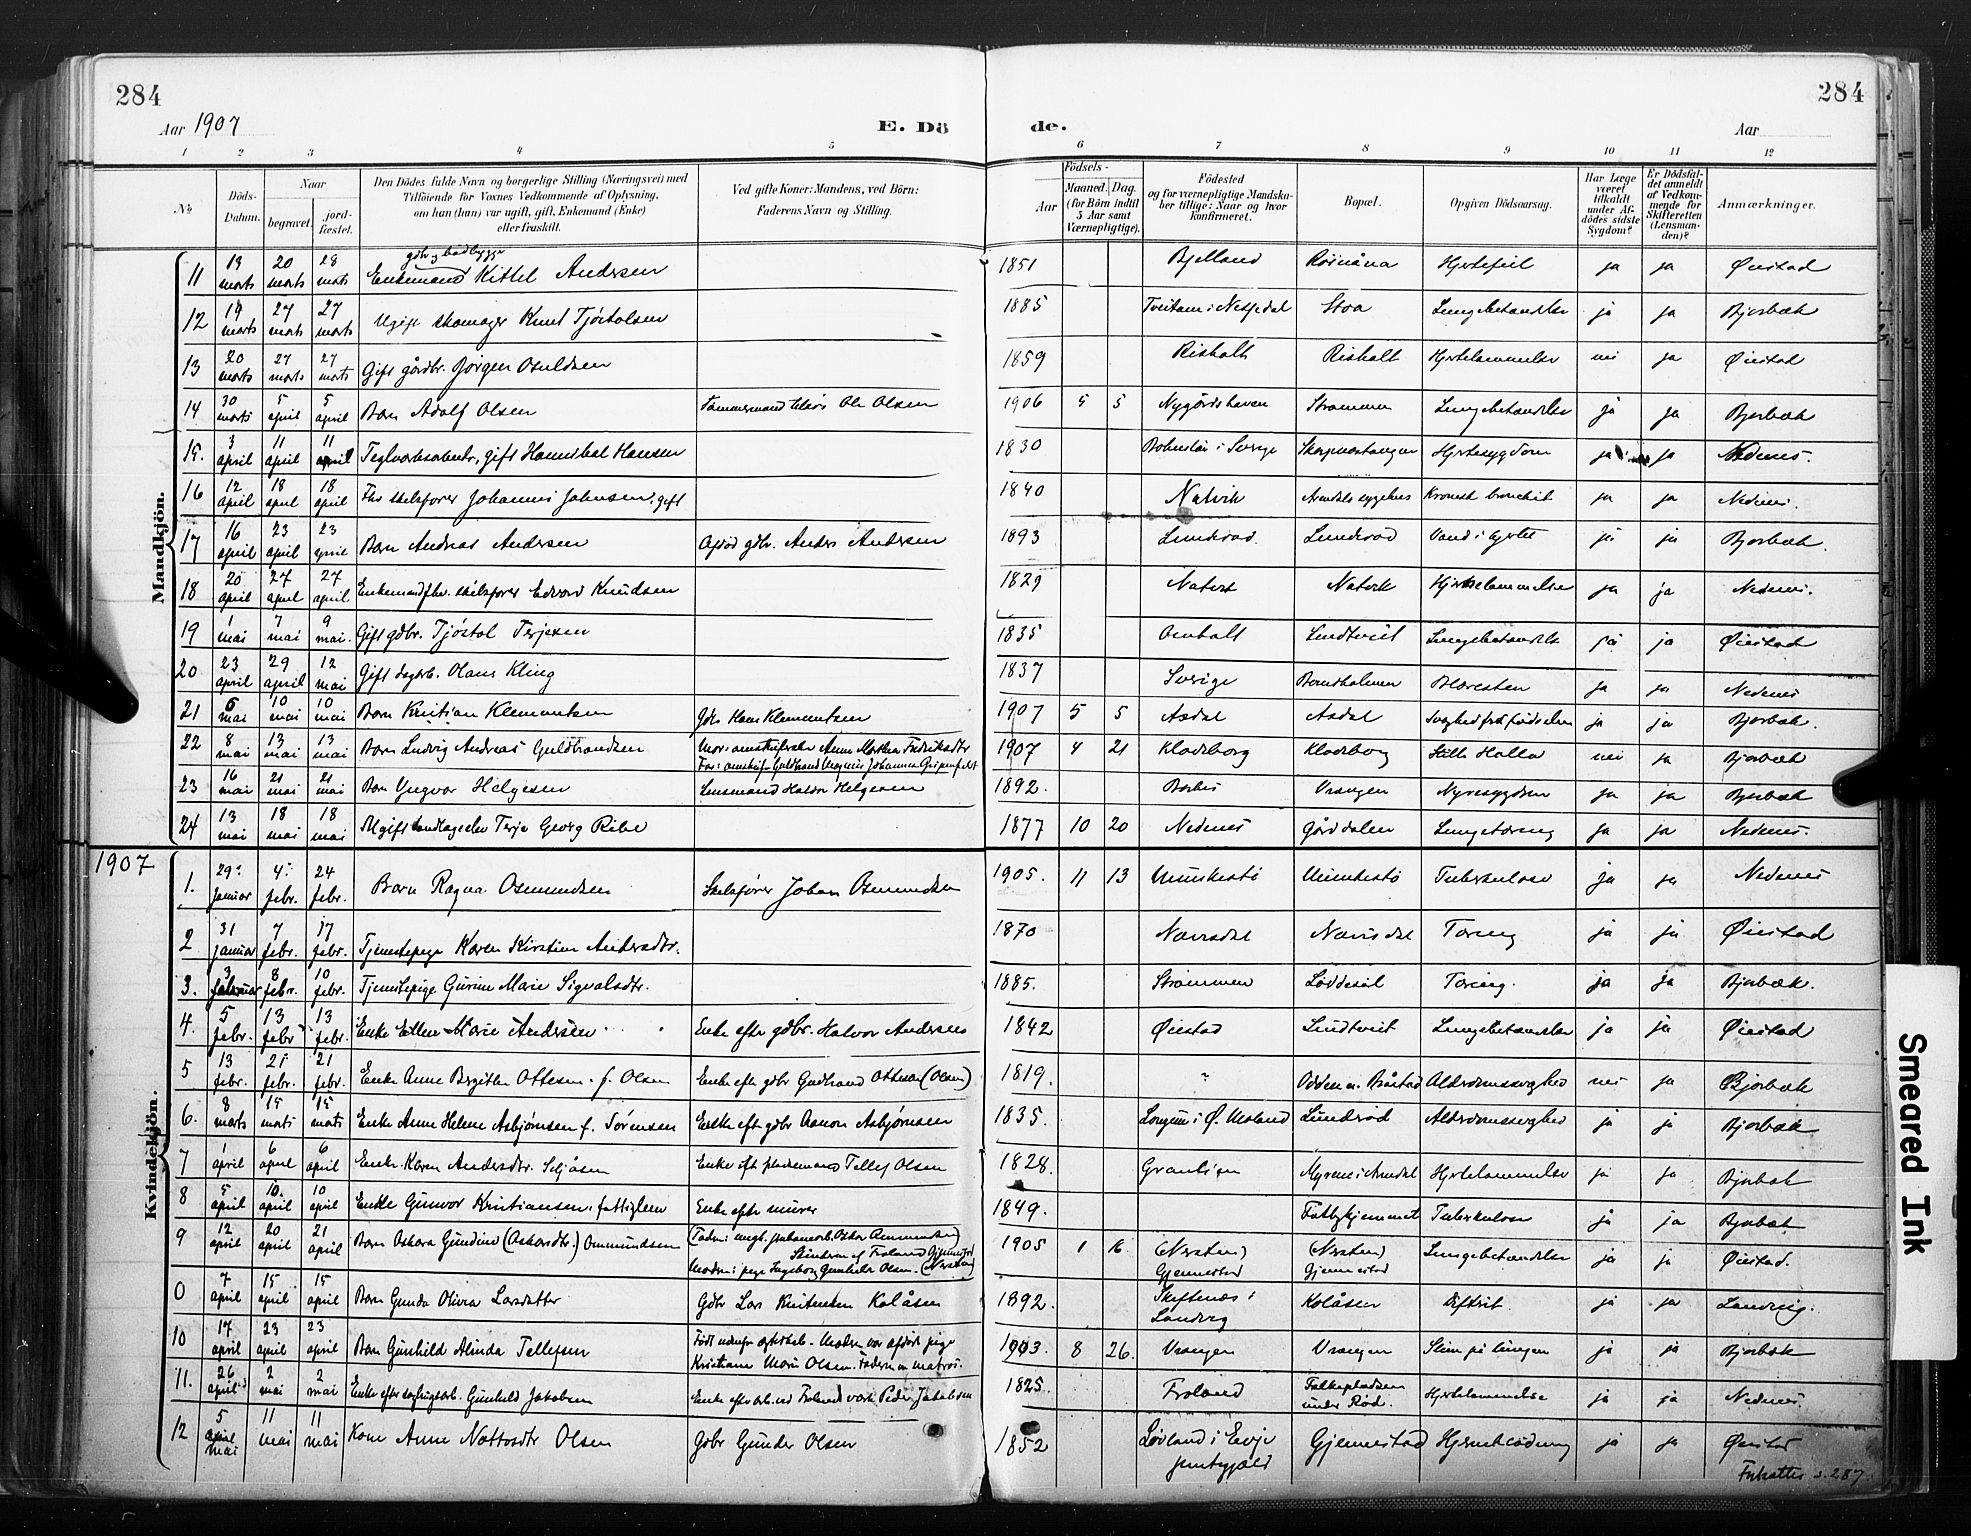 284
284
Aar 1907
E. Dö
de.
Aar
1 2 3 4 5 6 7 8 9 10 11 12
No
Döds-Datum.
Naar begravet. jord-fæstet.
Den Dödes fulde Navn og borgerlige Stilling (Næringsvei) med Tilföiende for Voxnes Vedkommende af Oplysning, om han (hun) var ugift, gift, Enkemand (Enke) eller fraskilt.
Ved gifte Koner: Mandens, ved Börn: Faderens Navn og Stilling.
Födsels-
Aar
Maaned. Dag. (for Börn indtil 5 Aar samt Værnepligtige).
Födested og for værnepligtige Mandskaber tillige: Naar og hvor konfirmeret.
Bopæl.
Opgiven Dödsaarsag.
Har Læge været tilkaldt under Afdödes sidste Sygdom?
Er Dödsfaldet anmeldt af Vedkommende for Skifteretten (Lensmanden)?
Anmærkninger.
Mandkjön.
11 13 marts 20 marts 28 marts Enkemand Kittel Andersen 1851 Bjelland Hjertefeil ja ja Øiestad
12 19 marts 27 marts 27 marts Ugift skomager Knut Tjøstolsen 1885 Stoa Lungebetændelse ja ja Bjorbæk
13 20 marts 27 marts 27 marts Gift gårdbr. Jørgen Osuldsen 1859 Risholt Risholt Hjertelammelse nei ja Øiestad
14 30 marts 5 april 5 april Barn Adolf Olsen Tømmermand Ole Olsen 1906 5 5 Nygårdshaven Strømmen Lungebetændelse ja ja Bjorbæk
15. 3 april 11 april 11 april gift Hannibal Hansen 1830 i Sverige Hjertesygdom ja ja Nedenes.
16 12 april 18 april 18 april Fhv skibsfører Johannes Johnsen, gift 1840 Natvik Arendals sygehus Kronisk bronchit ja ja Nedenes.
17 16 april 23 april 23 april Barn Andreas Andersen Afdød gdbr. Anders Andersen 1893 Lunderød Lunderød Vand i hjertet ja ja Bjorbæk.
18 20 april 27 april 27 april Enkemand fhv. skibsfører Edvard Knudsen 1829 Natvik Natvik Hjertelammelse ja ja Nedenes.
19 1 mai 7 mai 9 mai. Gift gdbr. Tjøstol Terjesen 1835 Omholt Lindtveit Lungebetændelse ja ja Øiestad
20 23 april 29 april 12 mai Gift dagarb. Olaus Kling 1837 Sverige Blæresten ja ja Nedenes
21 6 mai 10 mai 10 mai Barn Kristian Klementsen Gdbr Hans Klementsen 1907 5 5 Asdal Asdal Svaghed fra fødselen ja ja Bjorbæk.
22 8 mai 13 mai 13 mai Barn Ludvig Andreas Guldbrandsen Mor: Anne Martha Fredriksdtr
Far: Guldbrand Magnus Johannes 1907 4 21 Klodeborg Klodeborg nei ja Bjorbæk
23 16 mai 21 mai 21 mai Barn Yngvar Helgesen Lensmand Helgesen 1892. Vrengen Nyresygdom ja ja Bjorbæk
24 13 mai 18 mai 18 mai Ugift Terje Georg Ribe 1877 10 20 Nedenes Gårddalen Lungetæring ja ja Nedenes.
1907
Kvindekjön.
1. 29 januar 4 febr. 24 febr. Barn Ragna Osmundsen Skibsfører Johan Osmundsen 1905. 11 13 Munkestø Munkestø Tuberkulose ja ja Nedenes
2 31 januar 7 febr. 17 febr. Tjenestepige Karen Kirstine Andersdtr. 1870 Nævisdal Nævisdal Tæring ja ja Øiestad
3. 3 februar 8 febr. 10 febr. Tjenestepige Gurine Marie Sigvaldsdtr. 1885. Strømmen Løddesøl Tæring. ja ja Bjorbæk.
4. 5 febr. 13 febr 13 febr. Enke Ellen Marie Andersen Enke efter gdbr. Halvor Andersen 1842 Øiestad Lindtveit Lungebetændelse ja ja Øiestad
5 13 febr. 21 febr. 21 febr. Enke Anne Birgitte Ottesen f. Olsen Enke efter gdbr Gudbrand Ottesen (Olsen) 1819. " Alderdomssvaghed nei ja Bjorbæk
6. 8 marts 15 marts 15 marts Enke Anne Helene Asbjørnsen f. Sørensen Enke efter gdbr Aanon Asbjørnsen 1835. Longum i Ø. Moland Lunderød Alderdomssvaghed ja ja Bjorbæk
7 1 april 6 april 6 april Enke Karen Andersdtr. Seljåsen Enke eft pladsmand Tellef Olsen 1828. Myrene i Arendal Hjertelammelse ja ja Bjorbæk
8 5 april 10 april 10 april Enke Gunvor Kristiansen, fattiglem Enke efter murer 1849. Tuberkulose ja ja Bjorbæk
9 12 april 20 april 21 april Barn Oskara Gundine (Oskarsdtr.) Ommundsen
Moderen: pige Ingeborg Gunhilde Olsen. 1905 1 16 (Nersten) Gjennestad (Nersten) Gjennestad Lungebetændelse ja ja Øiestad.
0 7 april 15 april 15 april Barn Gunda Olivia Larsdatter Gdbr Lars Kristensen Kolåsen 1892. Skiftenæs i Landvig Kolåsen Difterit. ja ja Landvig.
10 17 april 23 april 23 april Barn Gunhild Alinda Tellefsen Født udenfor ægteskab. Moderen var afdøde pige
Kristiane Marie Olsen. Faderen er matros. 1903. 8 26. Vrengen Vrengen Slim på lungen ja ja Bjorbæk
11. 26 april 2 mai 2 mai Gunhild Jakobsen Enke efter arb. ved Froland værk Peder Jakobsen 1825. Froland under Rød. Hjertelammelse ja ja Nedenes.
12 5 mai 11 mai 11 mai Kone Anne Olsen Gdbr Gunder Olsen 1852 Løvland i Evje prestegjæld Gjennestad Hjerneblødning ja ja Øiestad
Fortsættes s. 287.
Smeared Ink